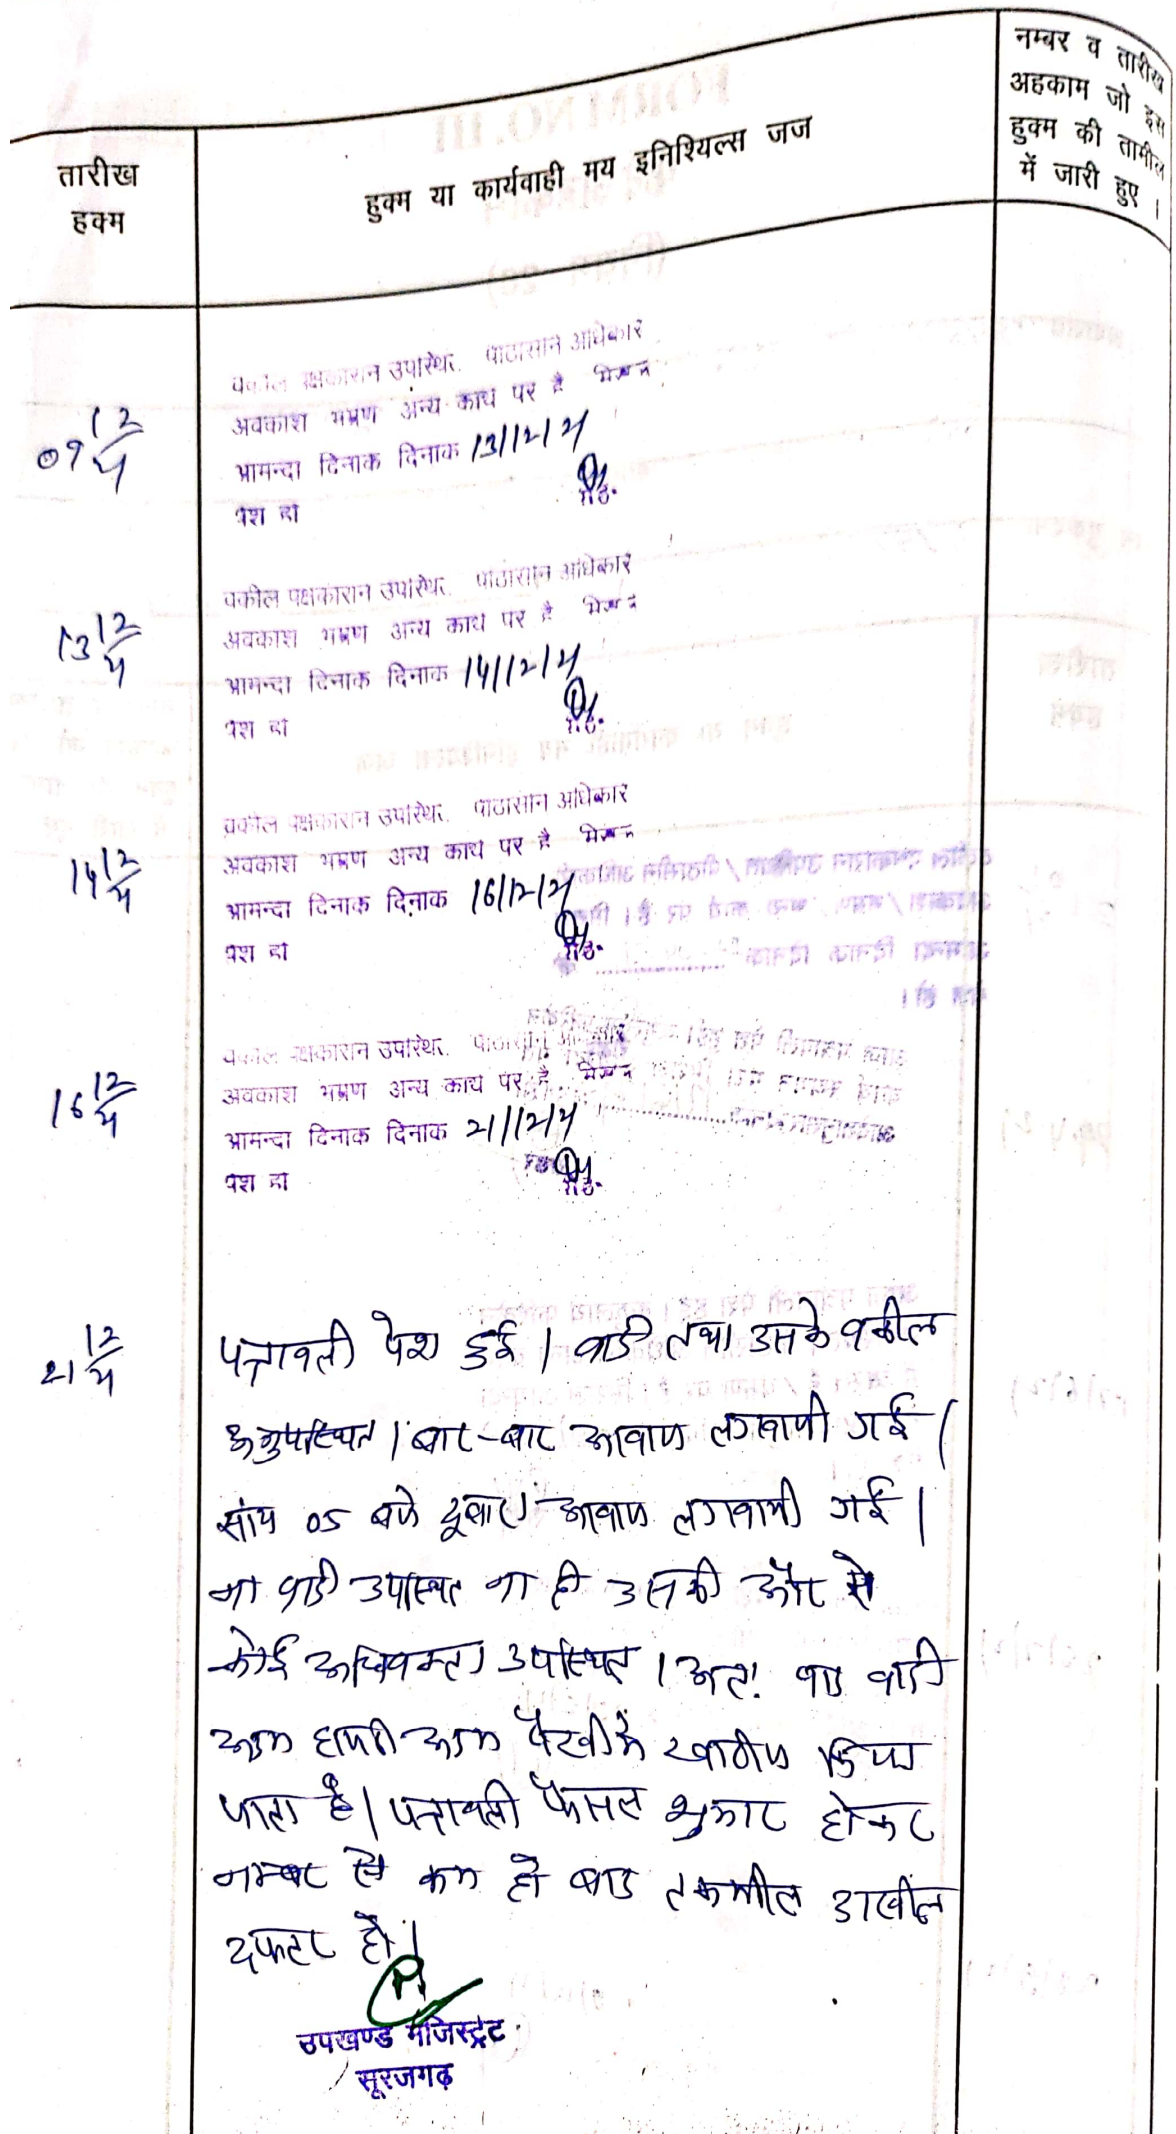 नम्बर व तारीख
अहकाम जो इस
हुक्म की तामील
में जारी हुए ।
तारीख
हक्म
हुक्म या कार्यवाही मय इनिश्यिल्स जज
09 12/24
वकील पक्षकारान उपस्थि. पीठासीन अधिकारी
अवकाश भ्रमण अन्य कार्य पर है मिसल
आमन्दा दिनांक दिनांक 13/12/24
पेश हो
13 12/24
वकील पक्षकारान उपस्थि. पीठासीन अधिकारी
अवकाश भ्रमण अन्य कार्य पर है मिसल
आमन्दा दिनांक दिनांक 14/12/24
पेश हो
14 12/24
वकील पक्षकारान उपस्थि. पीठासीन अधिकारी
अवकाश भ्रमण अन्य कार्य पर है मिसल
आमन्दा दिनांक दिनांक 16/12/24
पेश हो
16 12/24
वकील पक्षकारान उपस्थि. पीठासीन
अवकाश भ्रमण अन्य कार्य पर है मिसल
आमन्दा दिनांक दिनांक 21/12/24
पेश हो
21 12/24
पत्रावली पेश हुई । वादी तथा उसके वकील
अनुपस्थित । बार-बार आवाज लगवायी गई ।
सांय 05 बजे दूबारा आवाज लगवायी गई ।
ना वादी उपस्थित ना ही उसकी और से
कोई अधिवक्ता उपस्थित । अतः वाद वादी
अदम हाजरी अदम पैरवी में खारीज किया
जाता है । पत्रावली फैसल शुमार होकर
नम्बर से कम हो बाद तकमील दाखील
दफ्तर हो ।
उपखण्ड मजिस्ट्रेट
सूरजगढ़